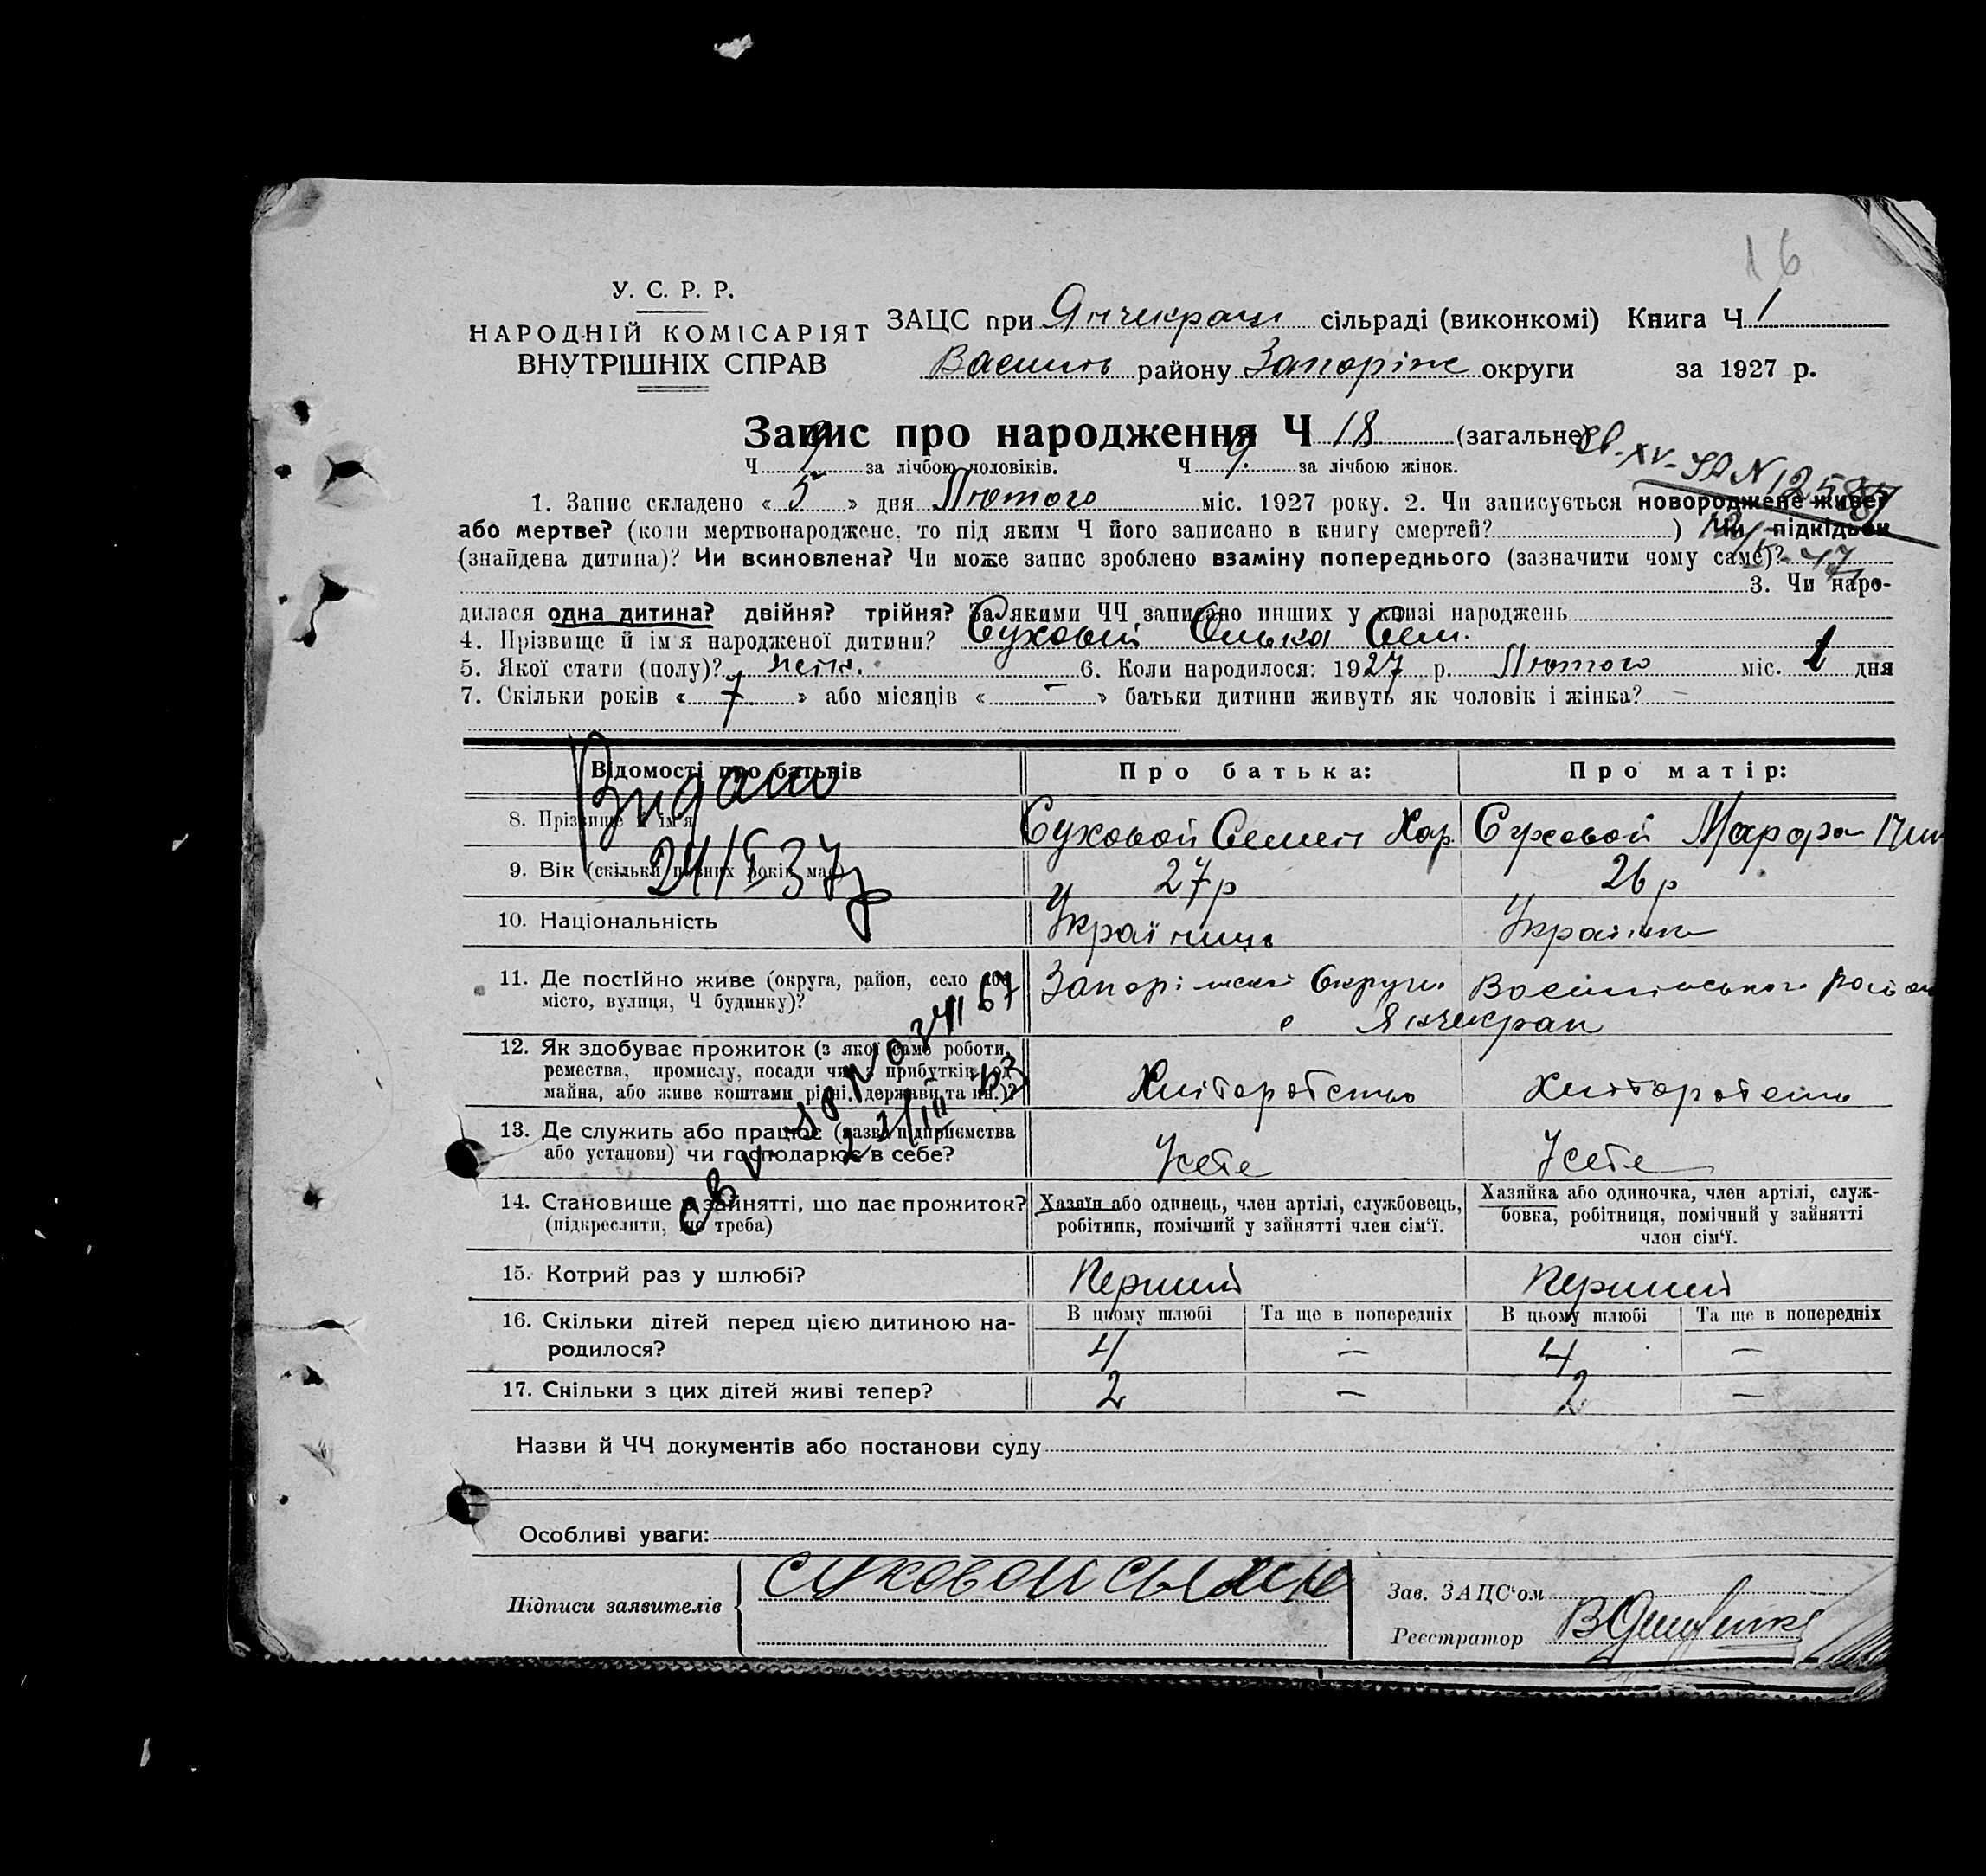 16
У. С. Р. Р.
НАРОДНІЙ КОМІСАРІЯТ
ВНУТРІШНІХ СПРАВ
ЗАЦС при Янчекрац сільраді (виконкомі) Книга Ч 1
району Запоріж округи за 1927 р.
Запис про народження Ч 18 (загальне)
Ч 9 за лічбою чоловіків. Ч 9 за лічбою жінок.
1. Запис складено « 5 » дня Лютого міс. 1927 року. 2. Чи записується новороджене живе?
або мертве? (коли мертвонароджене, то під яким Ч його записано в книгу смертей? ) Чи підкідьок
(знайдена дитина)? Чи всиновлена? Чи може запис зроблено взаміну попереднього (зазначити чому саме)?
3. Чи наро-
дилася одна дитина? двійня? трійня? За якими ЧЧ записано инших у книзі народжень
4. Прізвище й ім'я народженої дитини? Суховій Олька Сем.
5. Якої стати (полу)? жін. 6. Коли народилося: 1927 р. Лютого міс. 1 дня
7. Скільки років « 7 » або місяців « — » батьки дитини живуть як чоловік і жінка? —
Відомості про батьків Про батька: Про матір:
Видано
8. Прізвище й ім'я Суховой Семен Хар Суховой Марфа
24/I 37р
9. Вік (скільки повних років має) 27р 26р
10. Національність Українець Українка
11. Де постійно живе (округа, район, село або Запоріжской Округи Района
місто, вулиця, Ч будинку)? с Янчекрак
12. Як здобуває прожиток (з якої саме роботи,
ремества, промислу, посади чи з прибутків од
майна, або живе коштами рідні, держави та ин.)? Хліборобство Хліборобство
13. Де служить або працює (назва підприємства
або установи) чи господарює в себе? У себе У себе
14. Становище в зайнятті, що дає прожиток? Хазяїн або одинець, член артілі, службовець, Хазяйка або одиночка, член артілі, служ-
(підкреслити, що треба) робітник, помічний у зайнятті член сім'ї. бовка, робітниця, помічний у зайнятті
член сім'ї.
15. Котрий раз у шлюбі? Перший Перший
16. Скільки дітей перед цією дитиною на- В цьому шлюбі Та ще в попередніх В цьому шлюбі Та ще в попередніх
родилося? 4 — 4 —
17. Скільки з цих дітей живі тепер? 2 — 2 —
Назви й ЧЧ документів або постанови суду
Особливі уваги:
Підписи заявителів Суховой
Зав. ЗАЦС'ом
Реєстратор